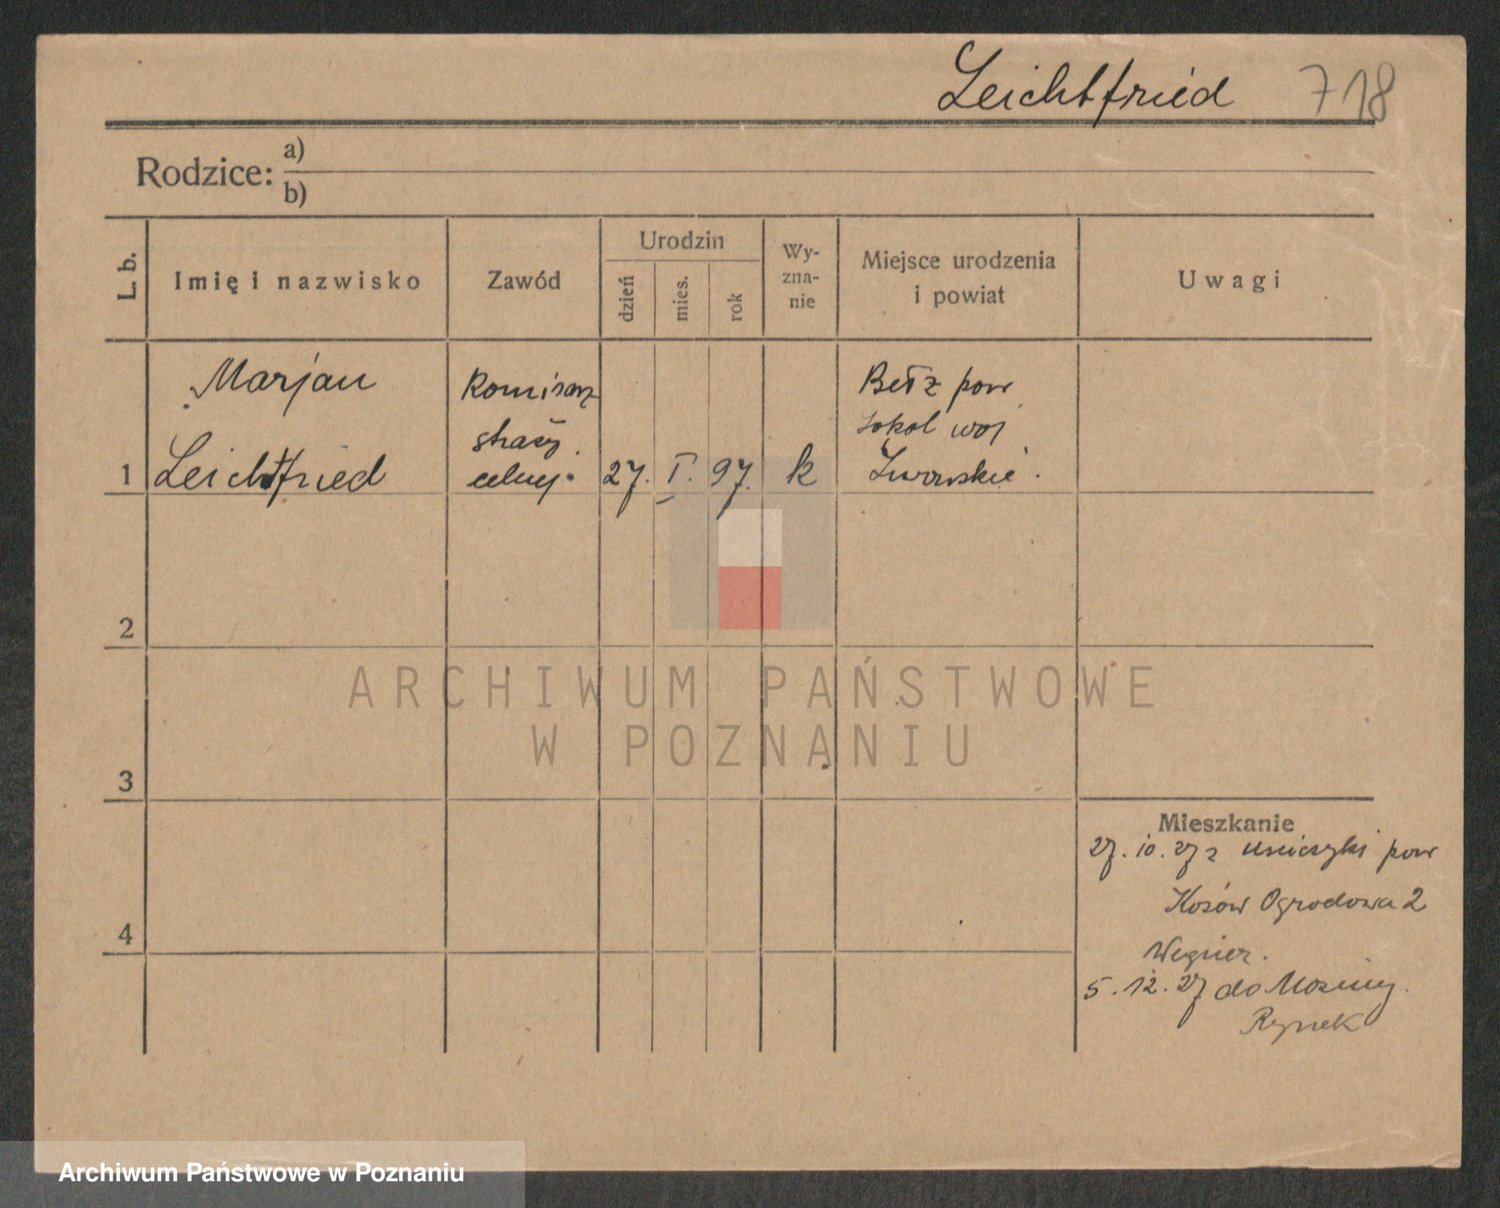 Leichtfried 718
Rodzice: a)
b)
L. b.
Imię i nazwisko
Zawód
Urodzin
dzień
mies.
rok
Wy-
zna-
nie
Miejsce urodzenia
i powiat
Uwagi
1
Marjan
Leichtfried
Komisarz
straży
celnej.
27. I. 97. k
Bełz pow
Sokal woj
Lwowskie.
2
3
4
Mieszkanie
27.10.27 z pow
Kosów Ogrodowa 2
Wegner.
5.12.27 do Mosiny.
Rynek
ARCHIWUM PAŃSTWOWE
W POZNANIU
Archiwum Państwowe w Poznaniu